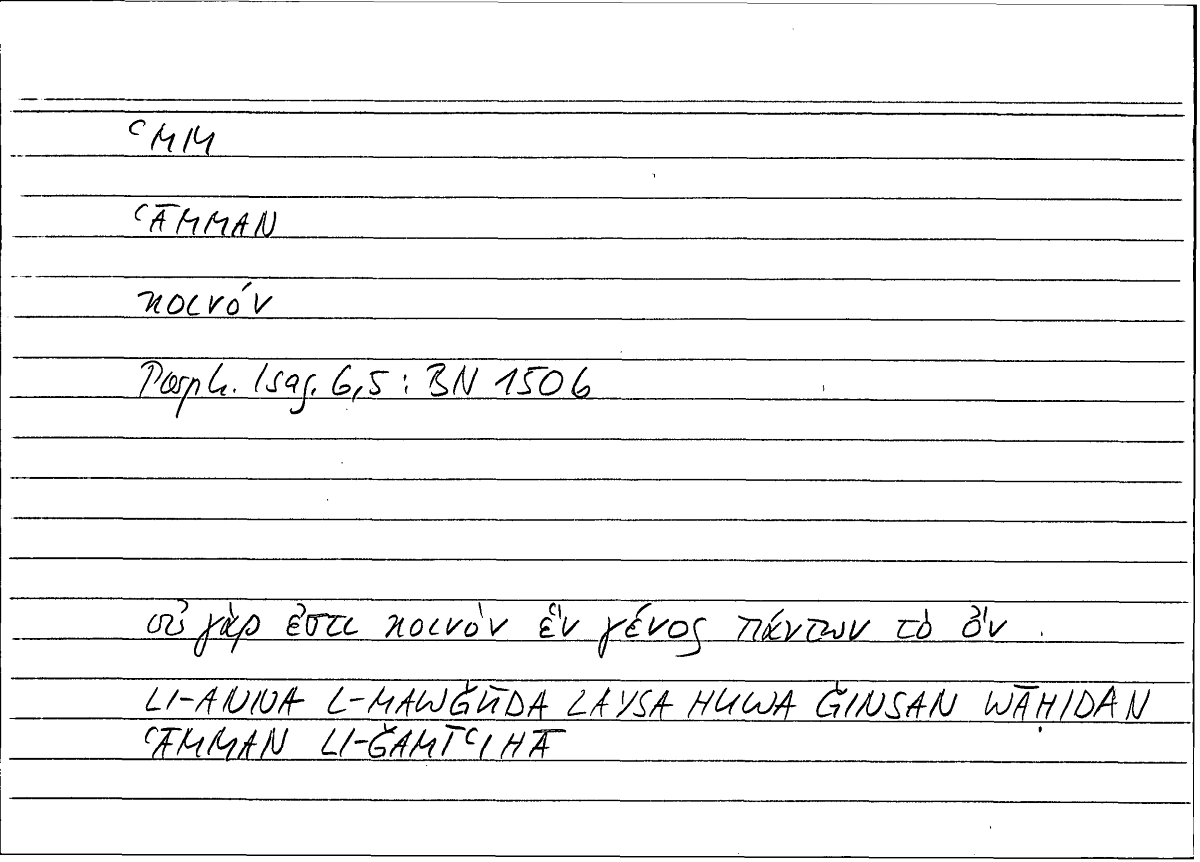 ʿMM
ʿĀMMAN
κοινόν
Porph. Isag. 6,5 : BN 1506
οὐ γάρ ἐστι κοινὸν ἓν γένος πάντων τὸ ὄν.
LI-ANNA L-MAWǦŪDA LAYSA HUWA ǦINSAN WĀḤIDAN
ʿĀMMAN LI-ǦAMĪʿIHĀ